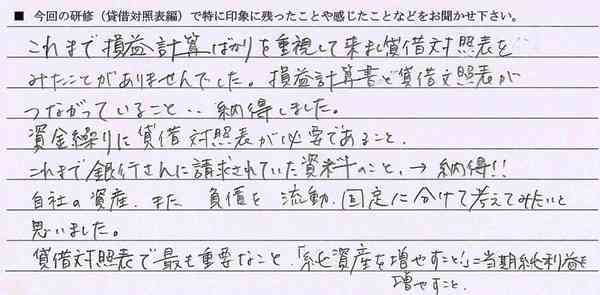 ■ 今回の研修（貸借対照表編）で特に印象に残ったことや感じたことなどをお聞かせ下さい。
これまで損益計算ばかりを重視して来まし貸借対照表を
みたことがありませんでした。損益計算書と貸借対照表が
つながっていること‥納得しました。
資金繰りに貸借対照表が必要であること.
これまで銀行さんに請求されていた資料のこと、→納得!!
自社の資産、また 負債を 流動、固定に分けて考えてみたいと
思いました。
貸借対照表で最も重要なこと、「純資産を増やすこと!」＝当期純利益を
増やすこと.